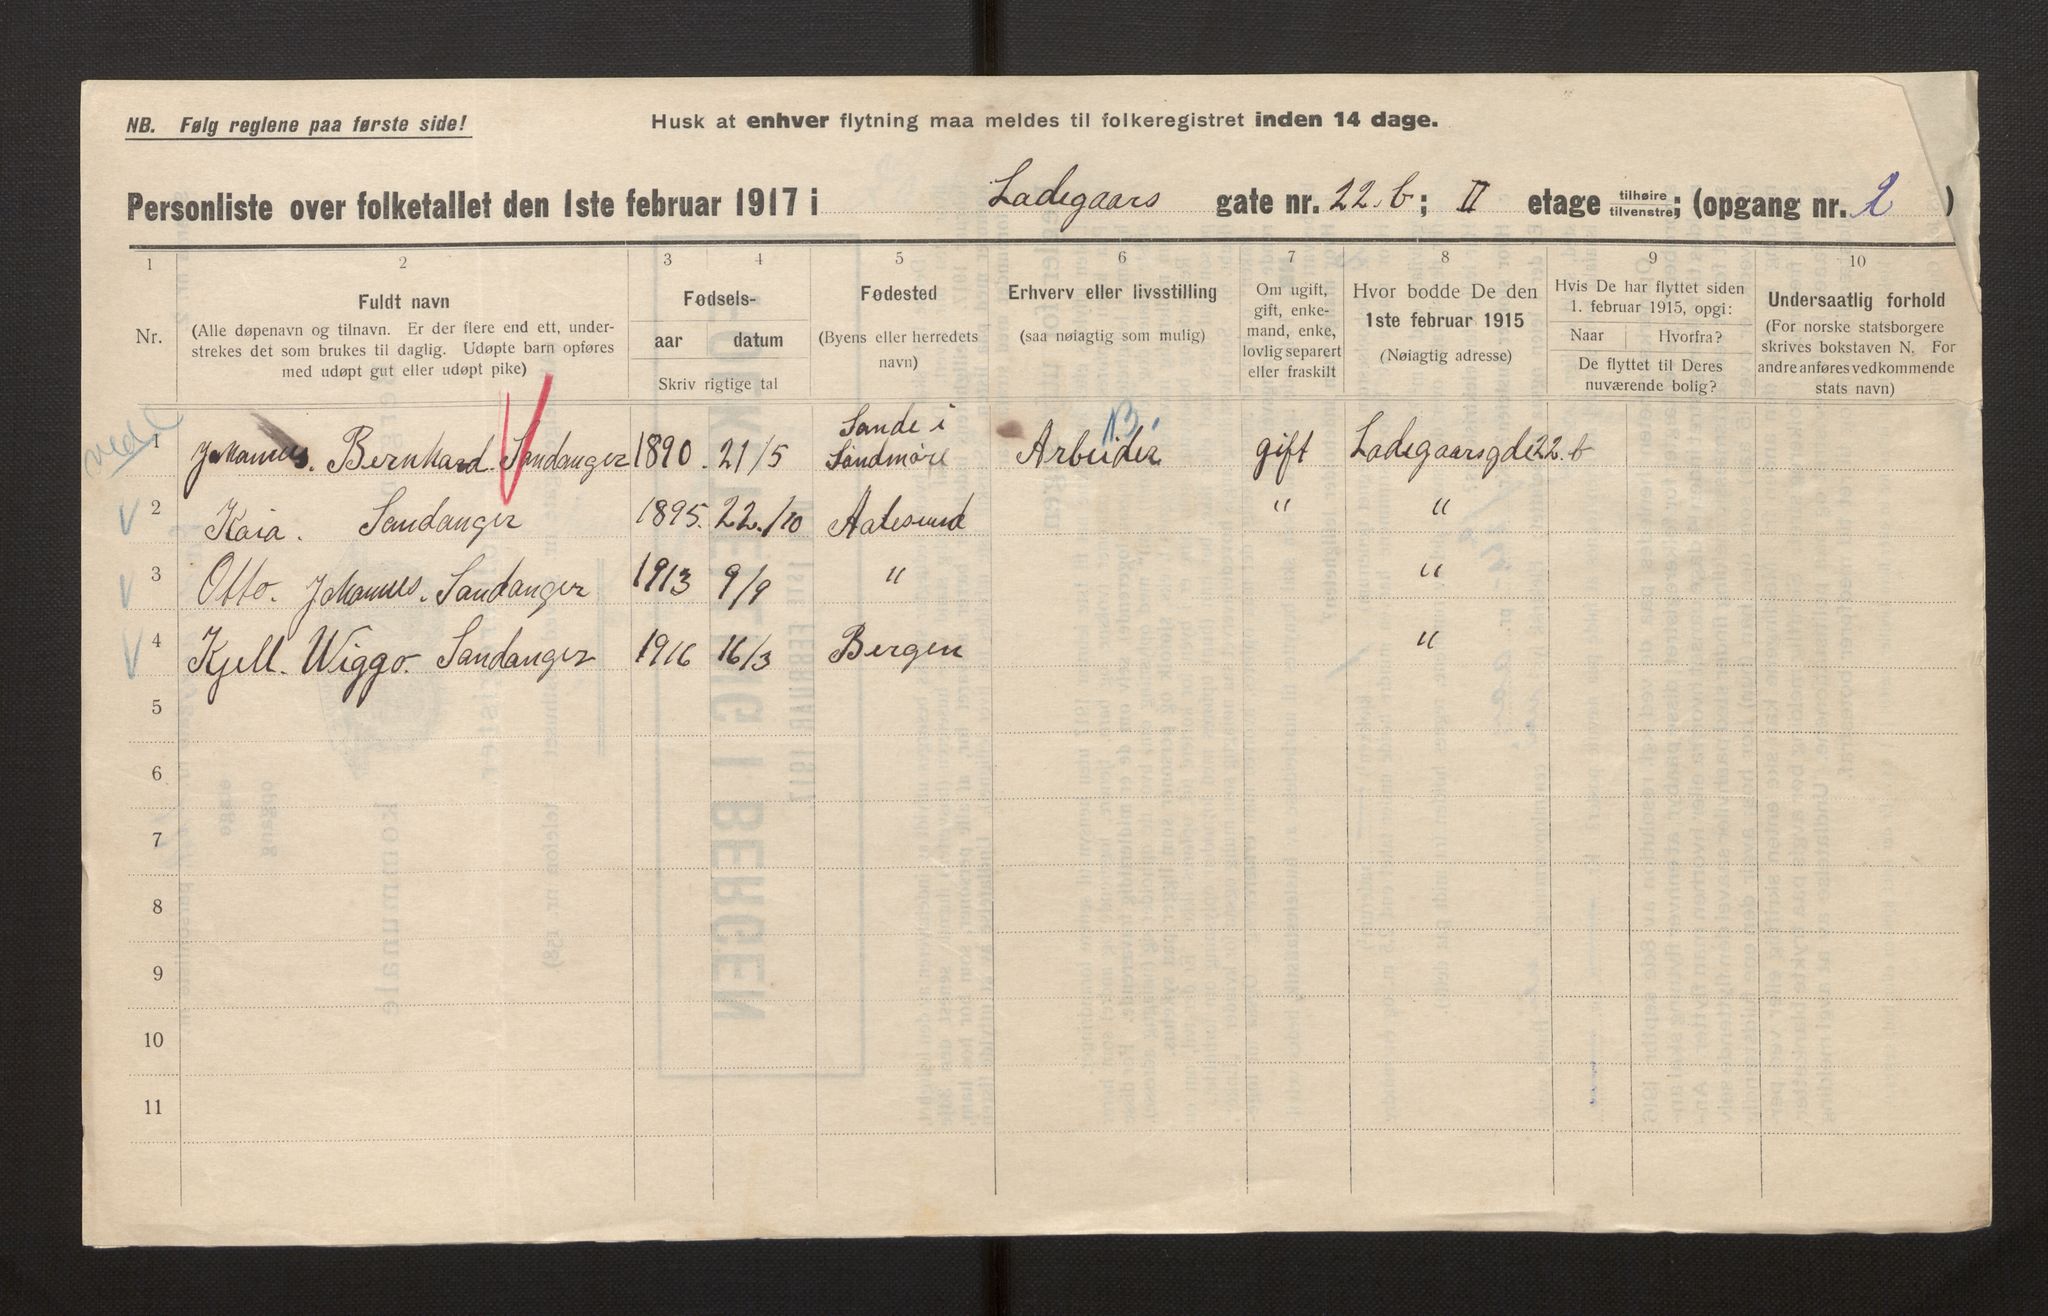 NB. Følg reglene paa første side!
Husk at enhver flytning maa meldes til folkeregistret inden 14 dage.
Personliste over folketallet den 1ste februar 1917 i Ladegaars gate nr. 22.b; II etage tilhøire/tilvenstre; (opgang nr. 2 )
1 2 3 4 5 6 7 8 9 10
Nr.
Fuldt navn
(Alle døpenavn og tilnavn. Er der flere end ett, under-
strekes det som brukes til daglig. Udøpte barn opføres
med udøpt gut eller udøpt pike)
Fødsels-
aar datum
Skriv rigtige tal
Fødested
(Byens eller herredets
navn)
Erhverv eller livsstilling
(saa nøiagtig som mulig)
Om ugift,
gift, enke-
mand, enke,
lovlig separert
eller fraskilt
Hvor bodde De den
1ste februar 1915
(Nøiagtig adresse)
Hvis De har flyttet siden
1. februar 1915, opgi:
Naar Hvorfra?
De flyttet til Deres
nuværende bolig?
Undersaatlig forhold
(For norske statsborgere
skrives bokstaven N. For
andre anføres vedkommende
stats navn)
1 Johannes. Bernhard. Sandanger 1890. 21/5 Sande i Søndmøre Arbeider gift Ladegaarsgde 22.b
2 Kaia. Sandanger 1895. 22./10 Aalesund " "
3 Otto. Johannes. Sandanger 1913 9/9 " "
4 Kjell. Wiggo. Sandanger 1916 16/3 Bergen "
5
6
7
8
9
10
11